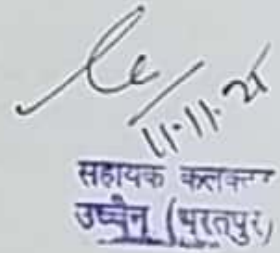 11.11.25
सहायक कलक्टर
उच्चैन (भरतपुर)